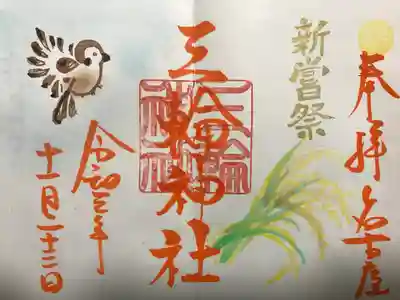 奉拝 名古屋
新嘗祭
三輪神社
三輪
神社
令和三年
十一月二十三日